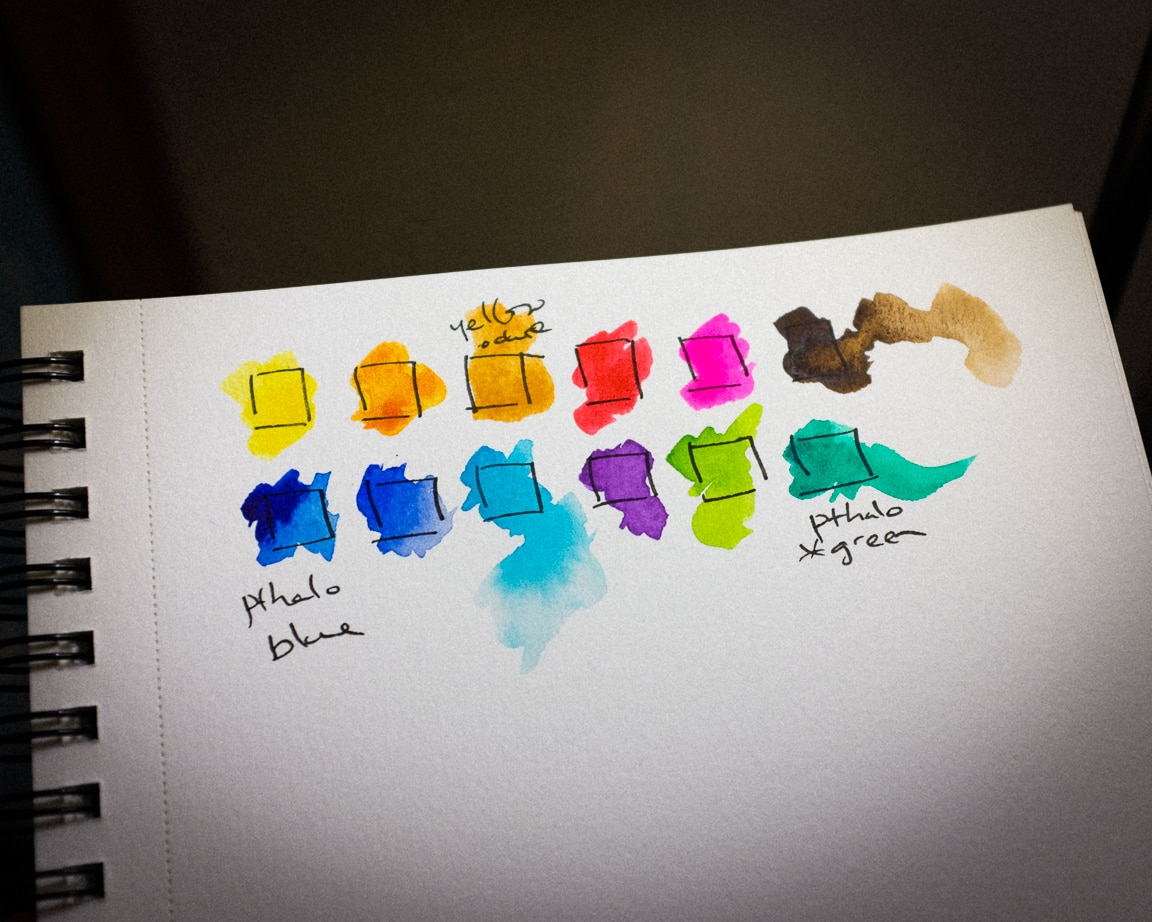 yellow
ocure
pthalo
green
pthalo
blue